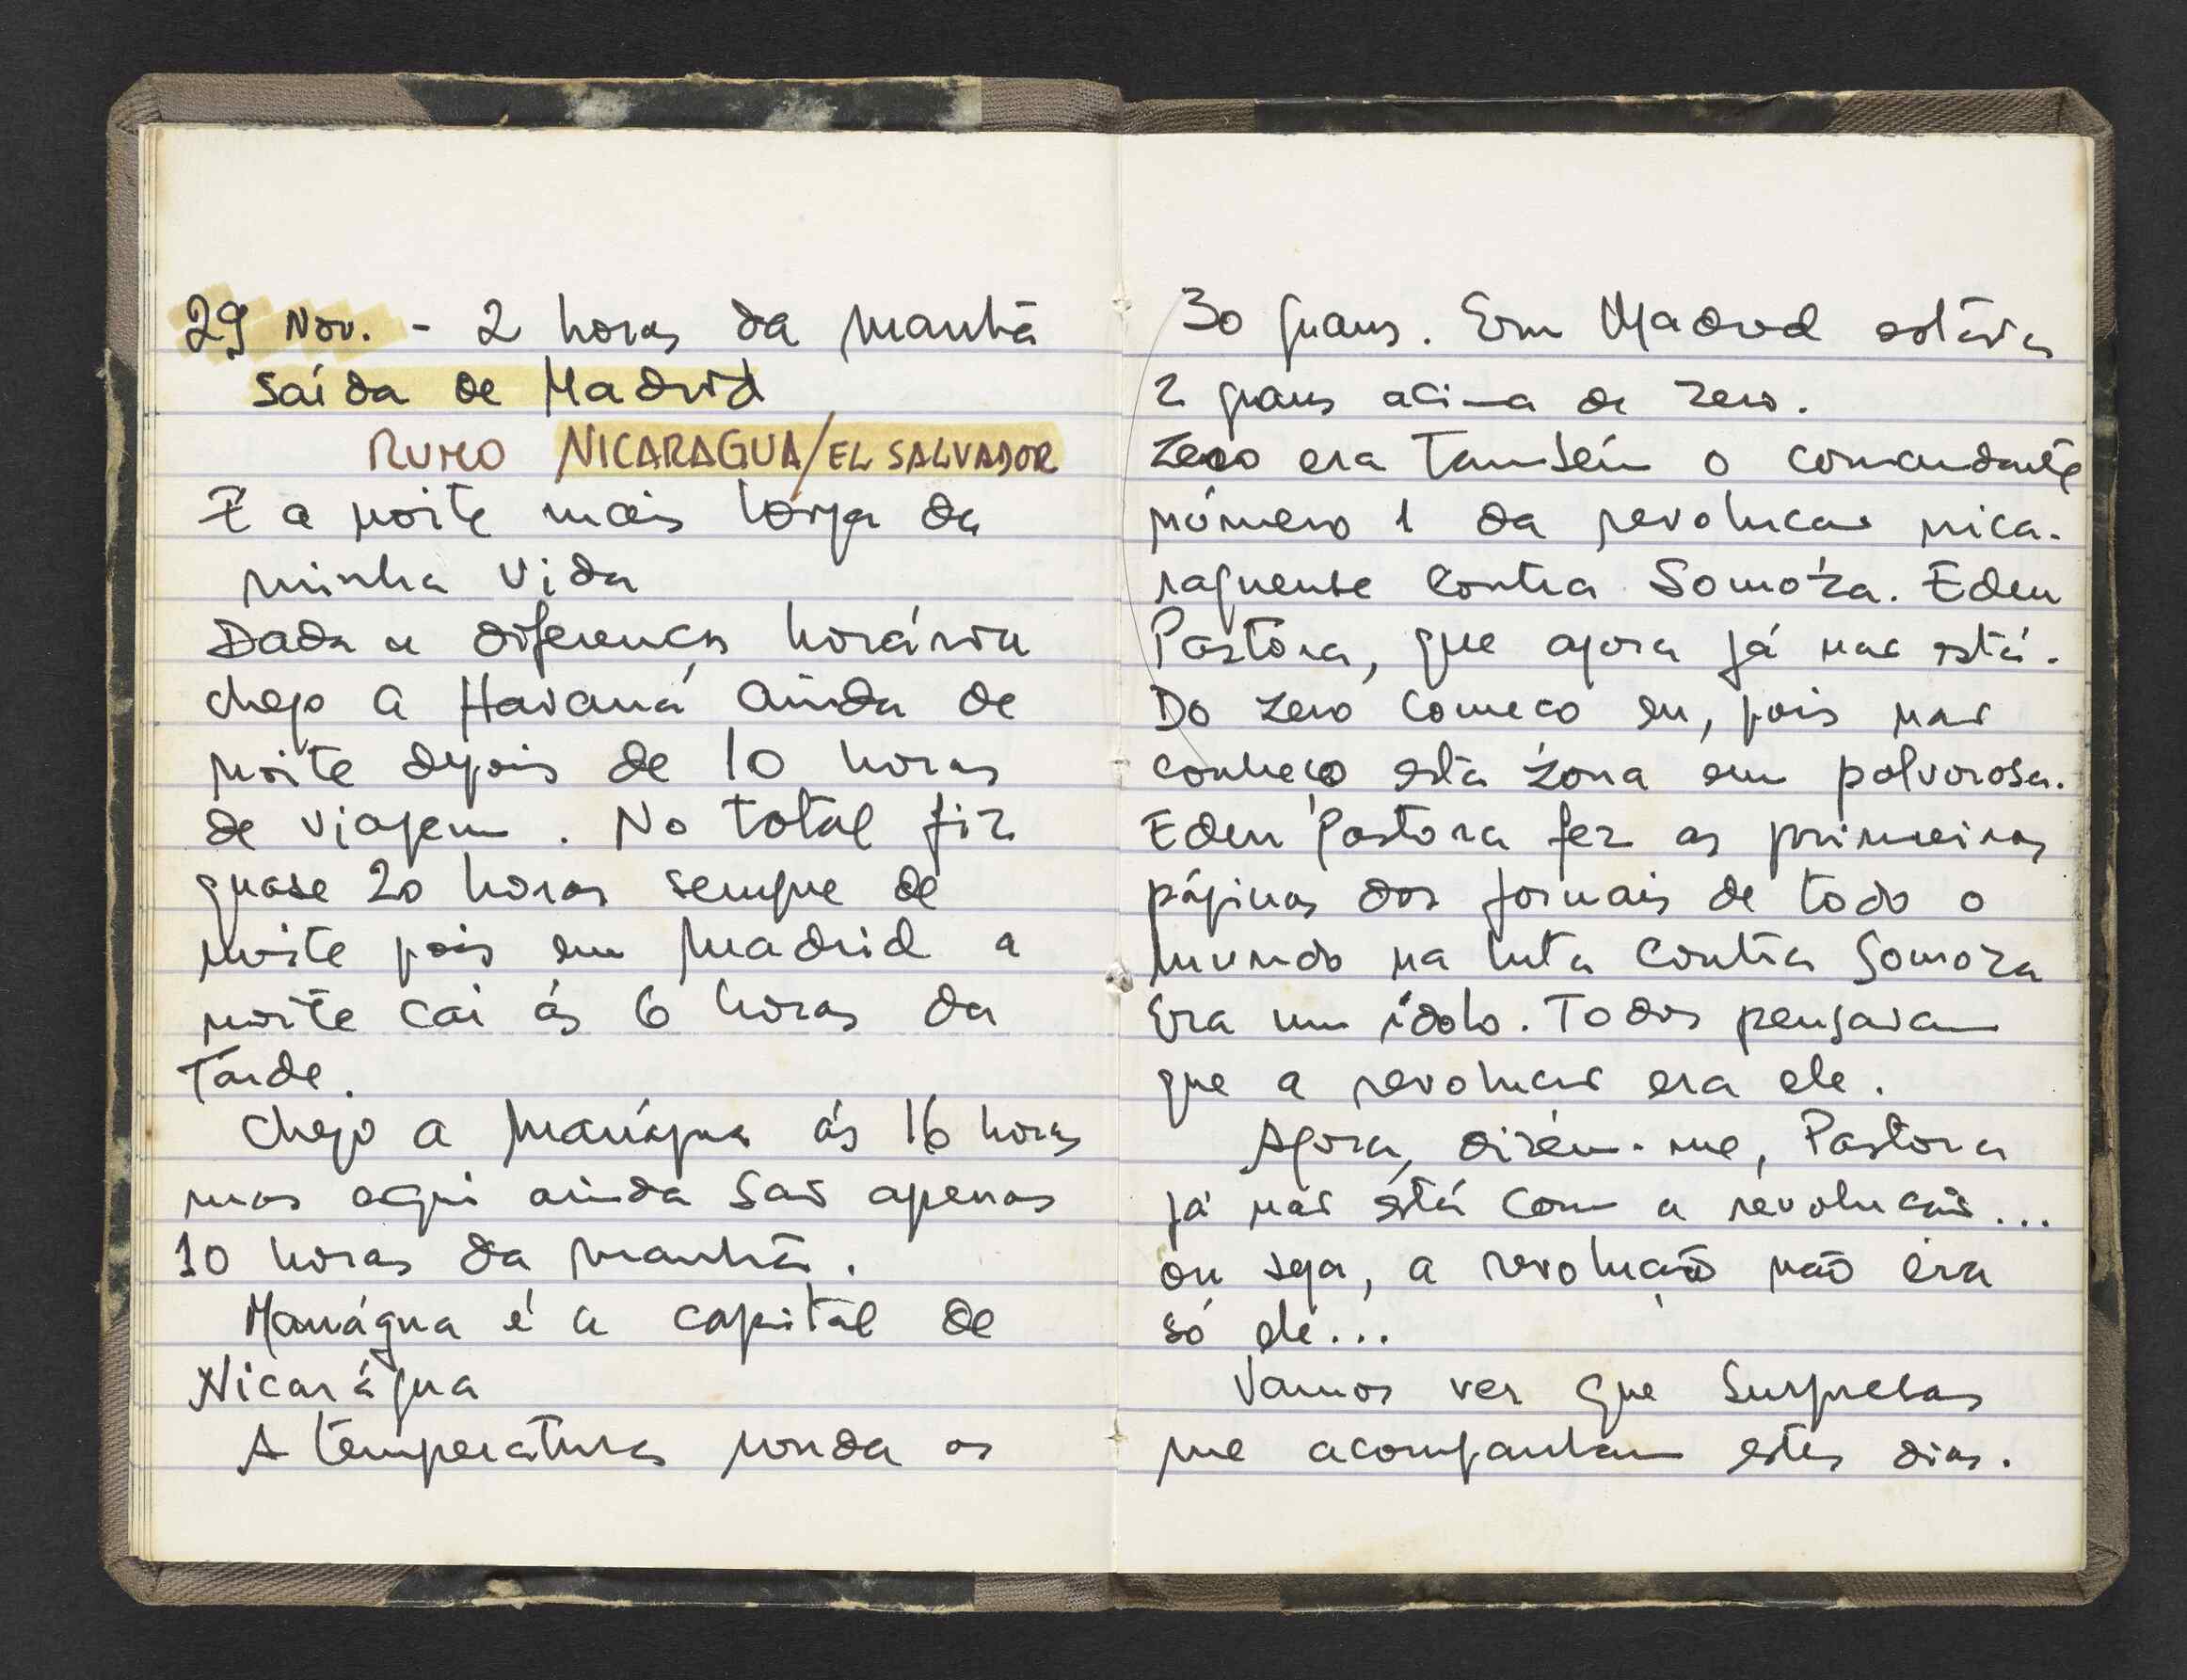 29 Nov. - 2 horas da manhã
saída de Madrid
RUMO NICARAGUA/EL SALVADOR
É a noite mais longa da
minha vida
Dada a diferença horária
chego a Havaná ainda de
noite depois de 10 horas
de viagem. No total fiz
quase 20 horas sempre de
noite pois em Madrid a
noite cai ás 6 horas da
tarde.
Chego a Manágua ás 16 horas
mas aqui ainda são apenas
10 horas da manhã.
Manágua é a capital de
Nicarágua
A temperatura ronda os
30 graus. Em Madrid estava
2 graus acima de zero.
Zero era também o comandante
número 1 da revolucão nica-
raguense contra Somóza. Eden
Pastora, que agora já não está.
Do zero começo eu, pois não
conheço esta zona em polvorosa.
Eden Pastora fez as primeiras
páginas dos jornais de todo o
mundo na luta contra Somoza
Era um ídolo. Todos pensavam
que a revolucão era ele.
Agora, dizem-me, Pastora
já não está com a revolucão...
ou seja, a revolução não era
só ele...
Vamos ver que surpresas
me acompanham estes dias.